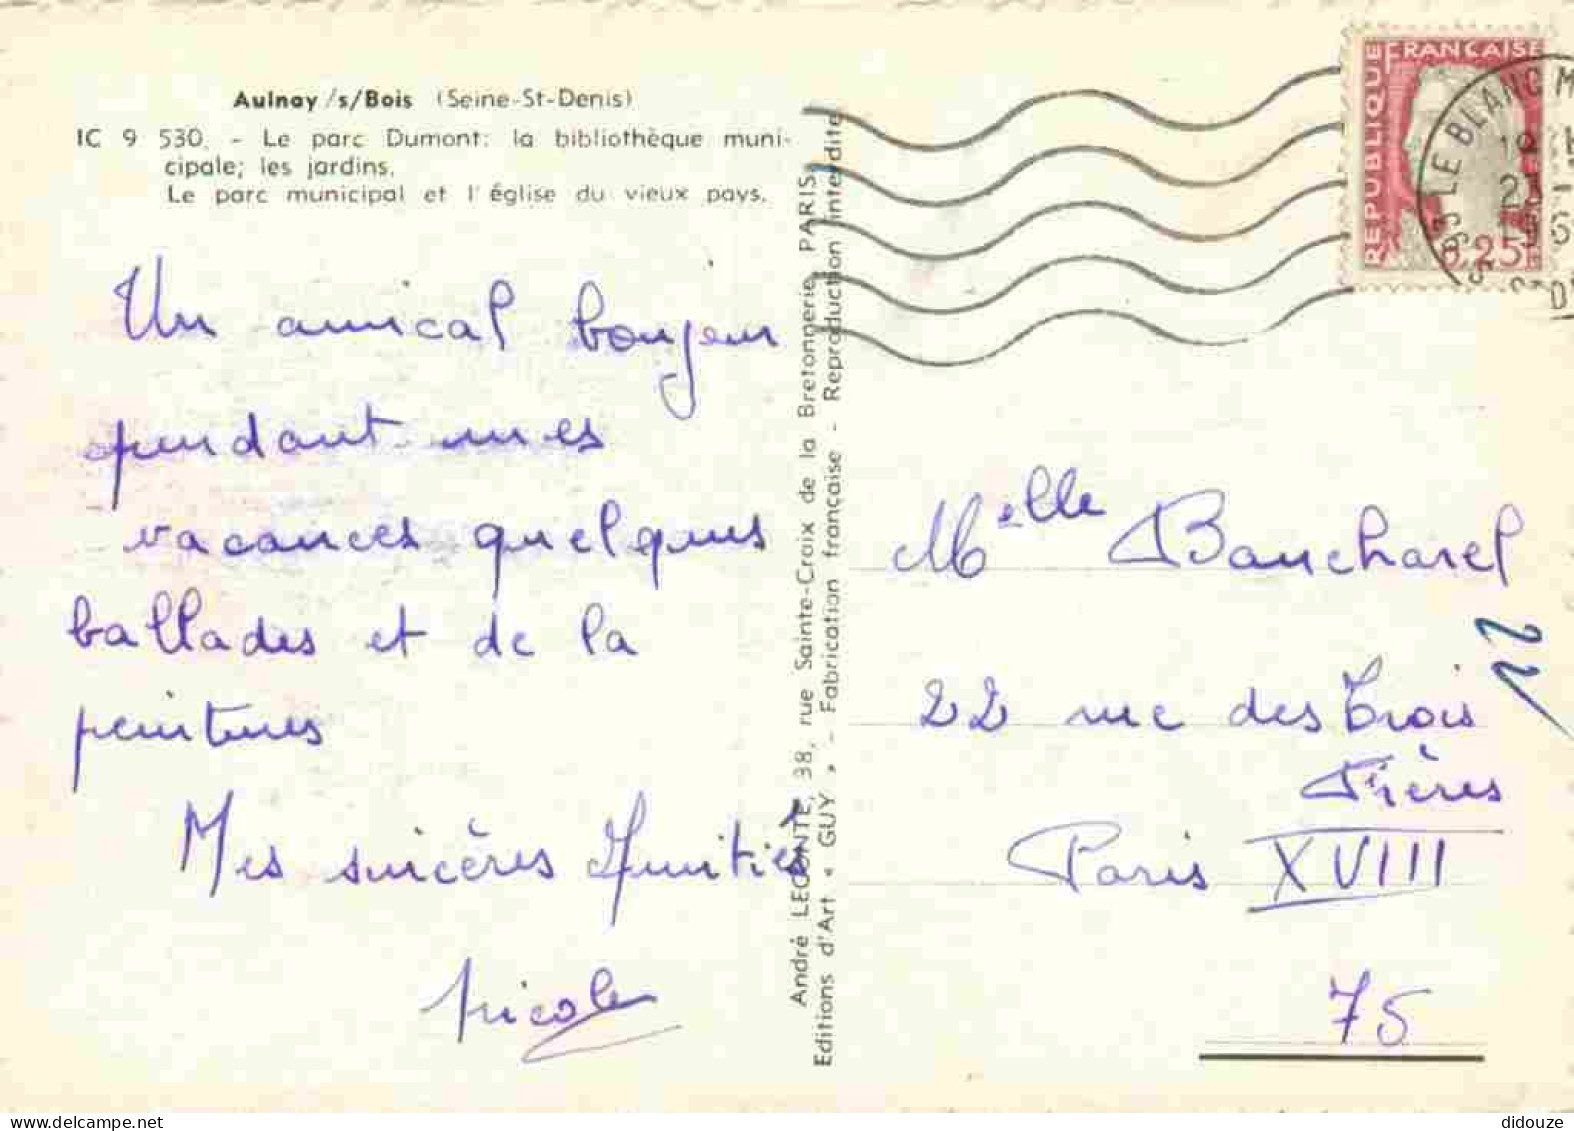 Aulnay /s/Bois (Seine-St-Denis)
IC 9 530. - Le parc Dumont: la bibliothèque muni-
cipale; les jardins.
Le parc municipal et l'église du vieux pays.
Un amical bonjour
pendant mes
vacances quelques
ballades et de la
peintures
Mes sincères Amitiés
Nicole
André LECONTE, 38, rue Sainte-Croix de la Bretonnerie, PARIS
Editions d'Art « GUY » - Fabrication française - Reproduction interdite
REPUBLIQUE FRANCAISE
0,25
93 LE BLANC M
Melle Baucharel
22 rue des Trois
Frères
Paris XVIII
75
22
didouze